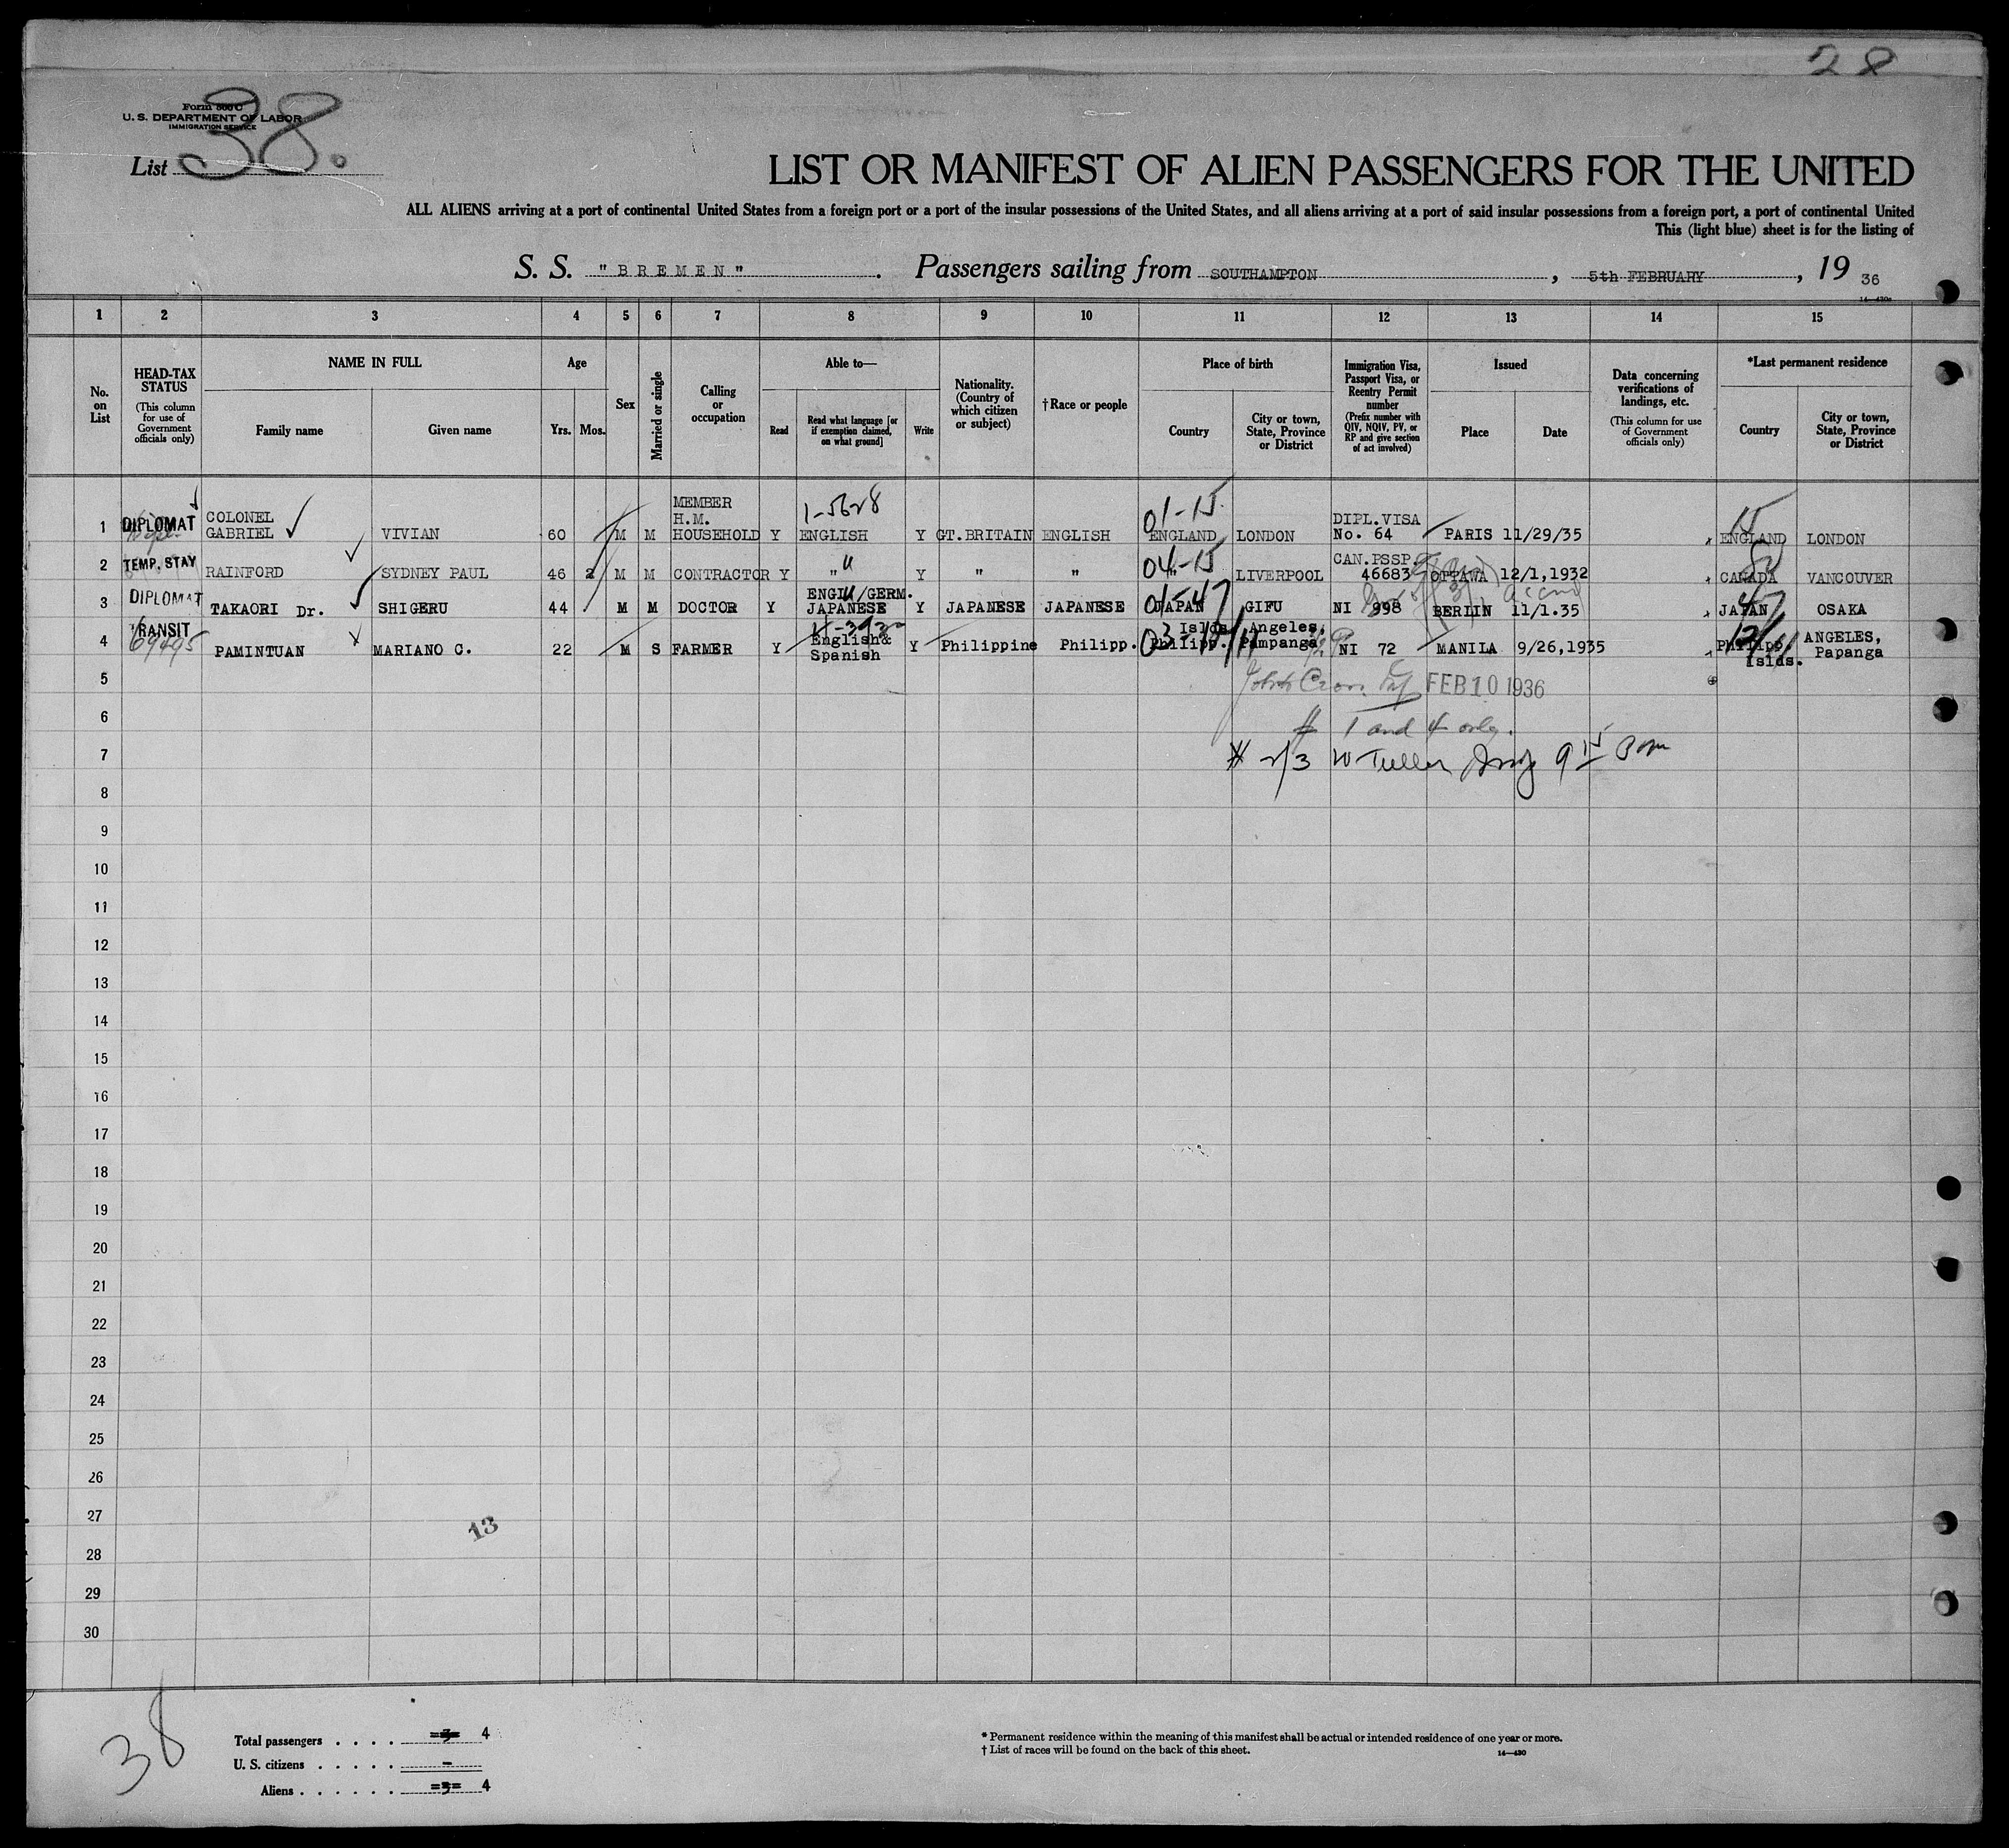 28
Form 500 C
U. S. DEPARTMENT OF LABOR
IMMIGRATION SERVICE
List 38.
LIST OR MANIFEST OF ALIEN PASSENGERS FOR THE UNITED
ALL ALIENS arriving at a port of continental United States from a foreign port or a port of the insular possessions of the United States, and all aliens arriving at a port of said insular possessions from a foreign port, a port of continental United
This (light blue) sheet is for the listing of
S. S. "BREMEN". Passengers sailing from SOUTHAMPTON, 5th FEBRUARY, 19 36
1 2 3 4 5 6 7 8 9 10 11 12 13 14 15
No. on List
HEAD-TAX STATUS (This column for use of Government officials only)
NAME IN FULL Family name Given name
Age Yrs. Mos.
Sex
Married or single
Calling or occupation
Able to— Read Read what language [or if exemption claimed, on what ground] Write
Nationality. (Country of which citizen or subject)
† Race or people
Place of birth Country City or town, State, Province or District
Immigration Visa, Passport Visa, or Reentry Permit number (Prefix number with QIV, NQIV, PV, or RP and give section of act involved)
Issued Place Date
Data concerning verifications of landings, etc. (This column for use of Government officials only)
*Last permanent residence Country City or town, State, Province or District
1 DIPLOMAT COLONEL GABRIEL VIVIAN 60 M M MEMBER H.M. HOUSEHOLD Y 1-5628 ENGLISH Y GT.BRITAIN ENGLISH 01-15 ENGLAND LONDON DIPL.VISA No. 64 PARIS 11/29/35 15 ENGLAND LONDON
2 TEMP. STAY RAINFORD SYDNEY PAUL 46 2 M M CONTRACTOR Y " Y " " 04-15 " LIVERPOOL CAN.PSSP. 46683 OTTAWA 12/1,1932 CANADA VANCOUVER
3 DIPLOMAT TAKAORI Dr. SHIGERU 44 M M DOCTOR Y ENGL./GERM. JAPANESE Y JAPANESE JAPANESE 01-47 JAPAN GIFU NI 998 BERLIN 11/1.35 47 JAPAN OSAKA
4 TRANSIT 69495 PAMINTUAN MARIANO C. 22 M S FARMER Y English& Spanish Y Philippine Philipp. Islds. Philipp. Angeles, Pampanga NI 72 MANILA 9/26,1935 Philipp. Islds. ANGELES, Papanga
5 FEB 10 1936
6 # 1 and 4 only.
7 # 2/3 W Tuller
8
9
10
11
12
13
14
15
16
17
18
19
20
21
22
23
24
25
26
27
13
28
29
30
38
Total passengers . . . . 3 4
U. S. citizens . . . . . -
Aliens . . . . . . 3 4
* Permanent residence within the meaning of this manifest shall be actual or intended residence of one year or more.
† List of races will be found on the back of this sheet. 14—430